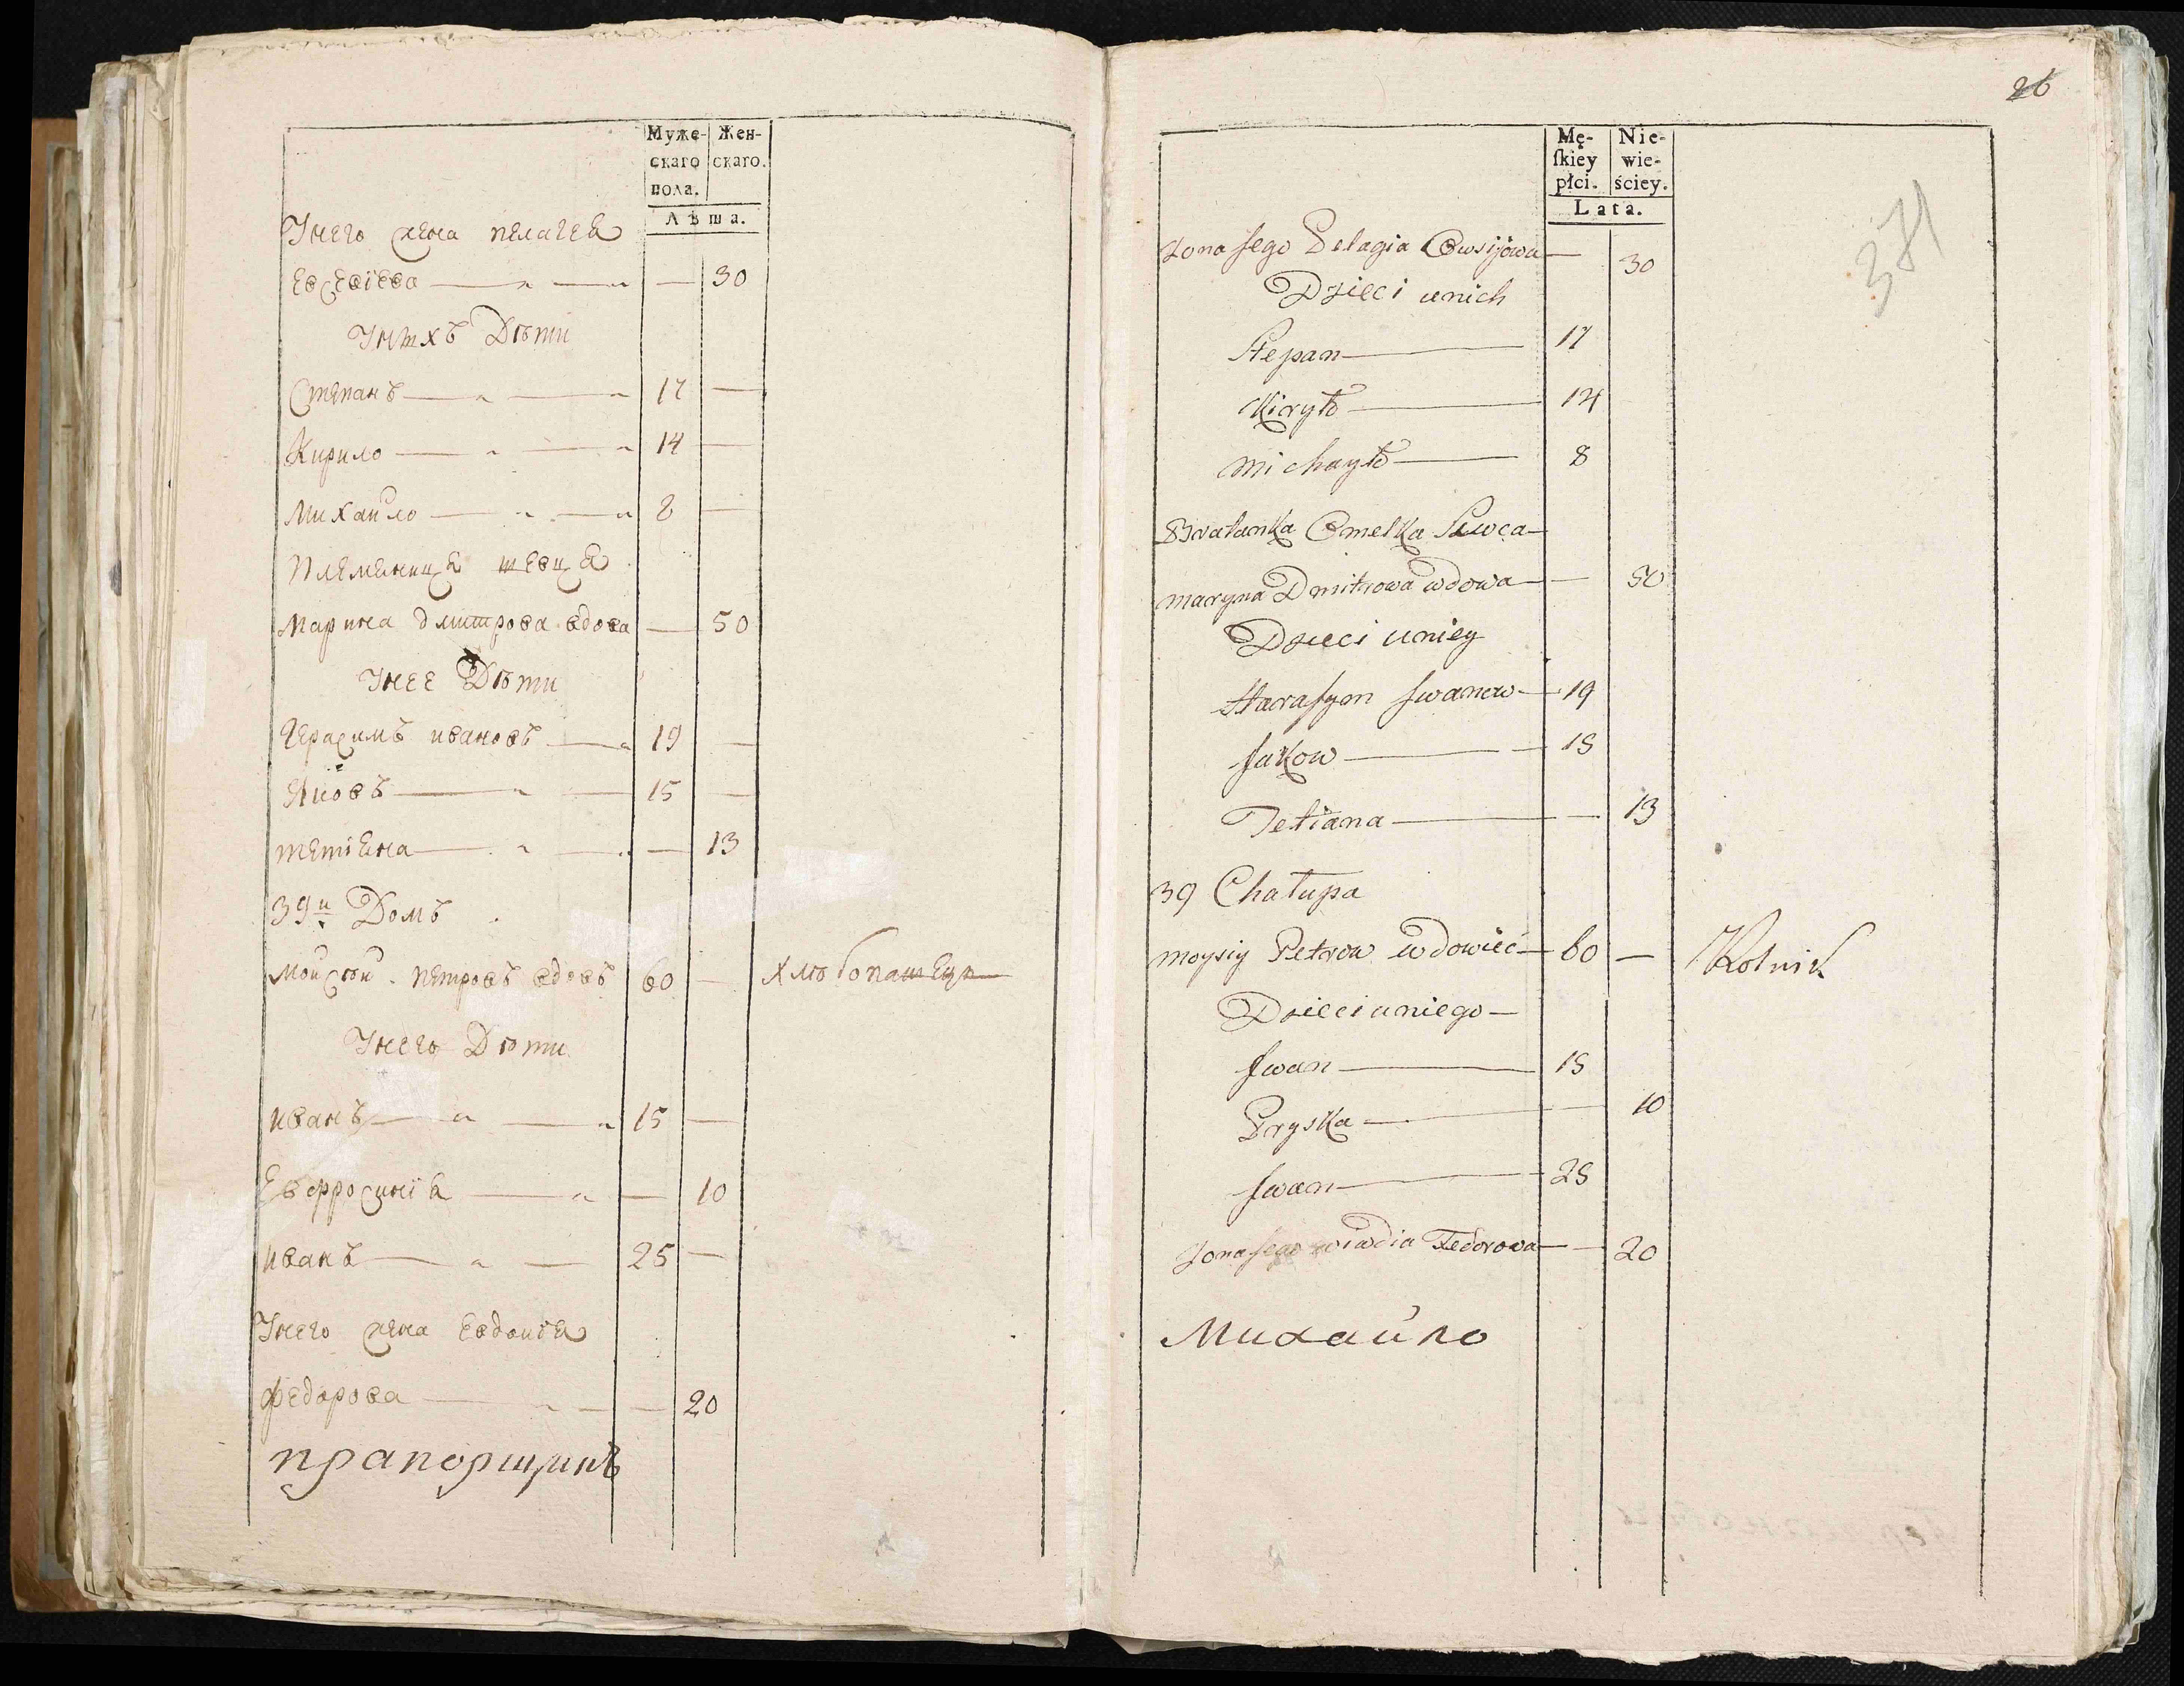 Муже-
скаго
пола.
Жен-
скаго.
Лѣта.
Унего жена пелагея
Евсеіева — 30
Унихъ Дѣти
Степанъ 17 —
Кирило 14 —
Михайло 8 —
племеница шевця
Марина дмитрова вдова — 50
Унее Дѣти
Герасимъ ивановъ 19 —
Яковъ 15 —
тетіяна — 13
39й Домъ
Мойсѣй петровъ вдовъ 60 — хлѣбопашецъ
Унего Дѣти
иванъ 15 —
Евфросинія — 10
иванъ 25 —
Унего жена Евдокія
федорова — 20
прапорщикъ
26
Mę-
ſkiey
płci.
Nie-
wie-
ściey.
Lata.
371
Zona Jego Pelagia Owsijowa — 30
Dzieci unich
Stepan 17
Kiryło 14
Michayło 8
Bratanka Omelka Szewca
Maryna Dmitrowa wdowa — 50
Dzieci uniey
Harasym Iwanow 19
Jakow 15
Tetiana — 13
39 Chałupa
Moysiy Petrow wdowiec 60 — Rolnik
Dzieci uniego
Iwan 15
Pryska — 10
Iwan 25
Zona Jego Fedorowa — 20
Михайло